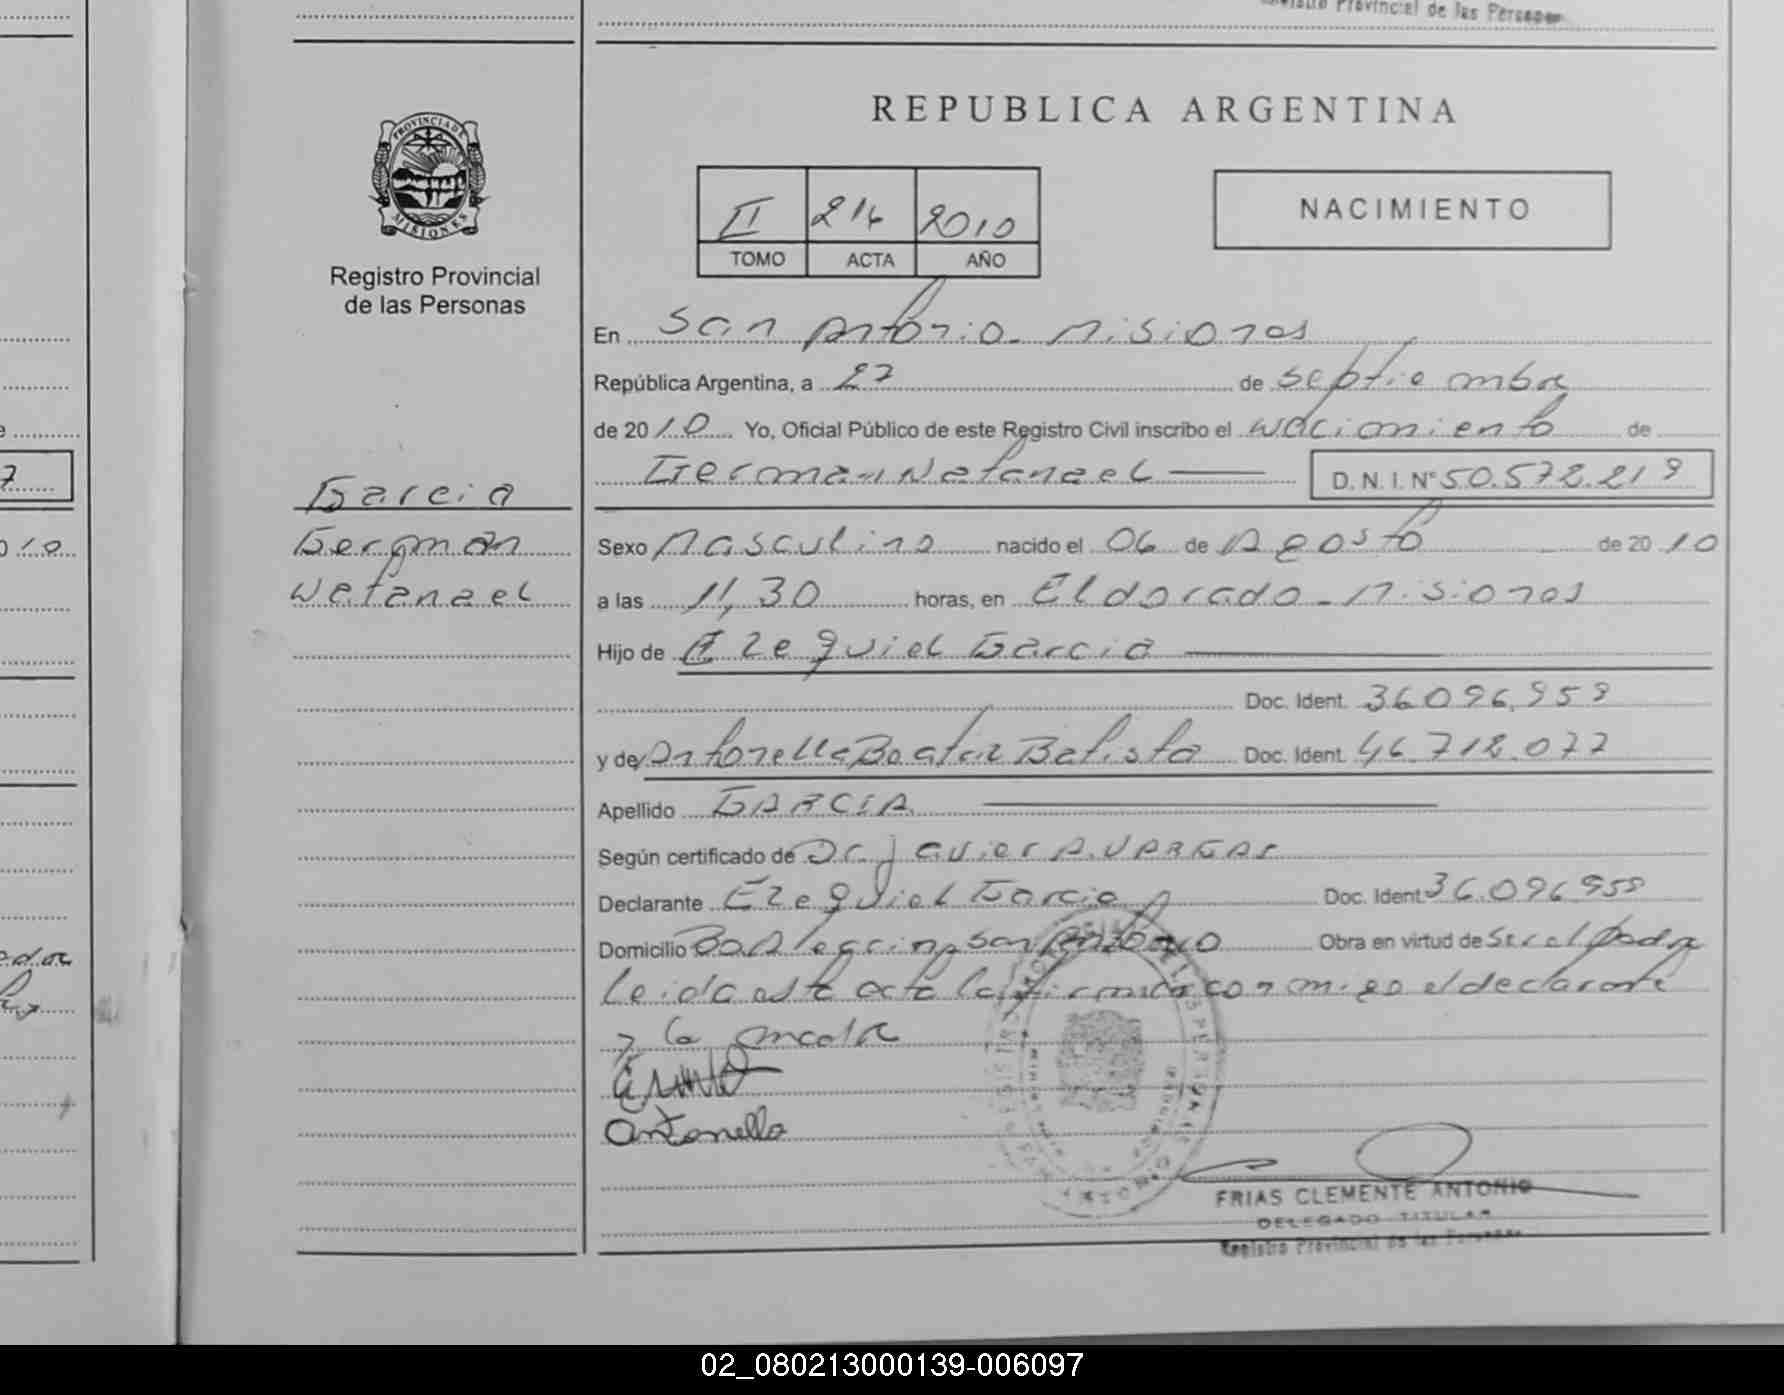 Registro Provincial de las Personas
REPUBLICA ARGENTINA
PROVINCIA DE
MISIONES
Registro Provincial
de las Personas
II 214 2010
TOMO ACTA AÑO
NACIMIENTO
En San Antonio - Misiones
República Argentina, a 27 de septiembre
de 2010 Yo, Oficial Público de este Registro Civil inscribo el Nacimiento de
German Natanael D.N.I. Nº 50.572.219
Garcia
German
Natanael
Sexo Masculino nacido el 06 de Agosto de 2010
a las 11,30 horas, en Eldorado - Misiones
Hijo de Ezequiel Garcia
Doc. Ident. 36.096.959
y de Antonella Beatriz Batista Doc. Ident. 46.712.077
Apellido GARCIA
Según certificado de Dr. Javier A. VARGAS
Declarante Ezequiel Garcia Doc. Ident 36.096.959
Domicilio San Antonio Obra en virtud de Ser el padre
Leida esta acta la firman conmigo el declarante
y la madre
Antonella
FRIAS CLEMENTE ANTONIO
DELEGADO TITULAR
Registro Provincial de las Personas
02_080213000139-006097